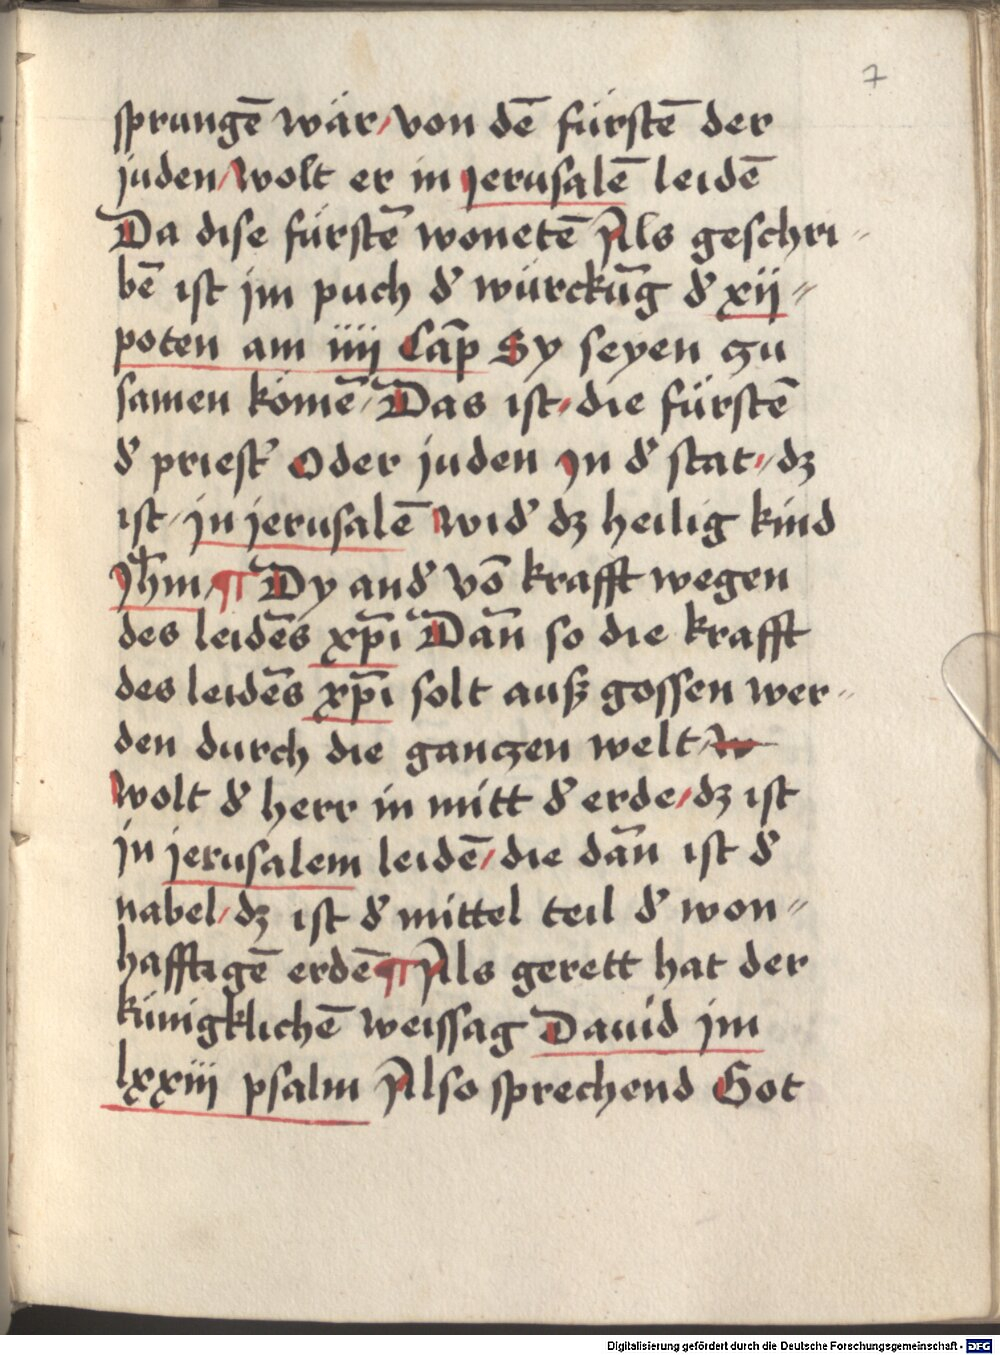 7
sprungē wär/von dē fürstē der
juden/wolt er in jerusalē leidē
Da dise fürstē wonetē Als geschri=
bē ist jm puch d̕ würckūg d̕ xij=
poten am iiij Cāp Sy seyen zu
samen kömē/Das ist/die fürstē
d̕ priest̕ Oder juden Jn d̕ stat/dz
ist/jn jerusalē wid̕ dz heilig kind
Jh̄m/¶ Dy and̕ vō krafft wegen
des leidēs xp̄i Dān so die krafft
des leidēs xp̄i solt auß gossen wer=
den durch die ganczen welt/w
wolt d̕ herr in mitt d̕ erde/dz ist
jn jerusalem leidē/die dān ist d̕
nabel/dz ist d̕ mittel teil d̕ won=
hafftigē erdē ¶ Als gerett hat der
künigklichē weissag Dauid jm
lxxiij psalm Also sprechend Got
Digitalisierung gefördert durch die Deutsche Forschungsgemeinschaft - DFG